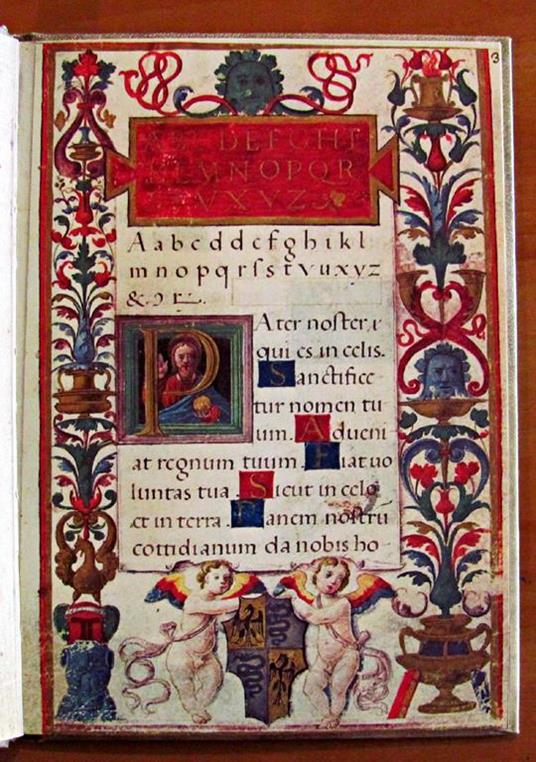 3
DEFGHI
MNOPQR
VXYZ
A a b c d d e f g h i k l
m n o p q r ſ s t v u x y z
&
P Ater noſter,
qui es in celis.
Sanctifice
tur nomen tu
um. Adueni
at regnum tuum. Fiat uo
luntas tua. Sicut in celo
et in terra. Panem noſtrū
cottidianum da nobis ho